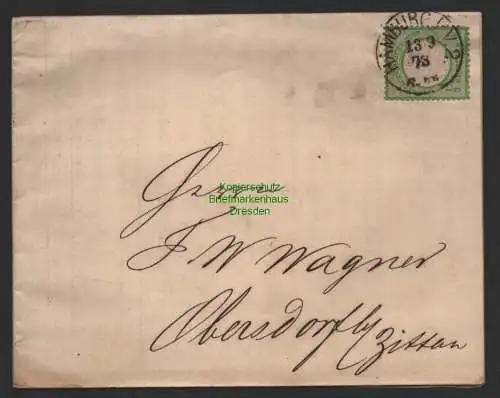 HAMBURG I.V.2.
13 9
73
Kopierschutz
Briefmarkenhaus
Dresden
Herrn
J W Wagner
Obersdorf by
Zittau